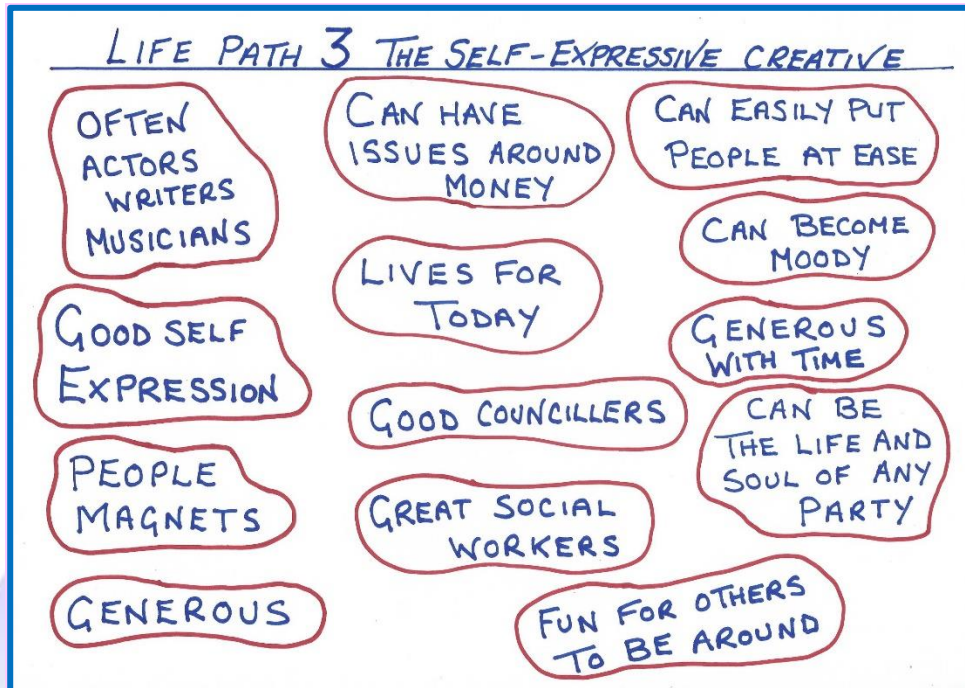 LIFE PATH 3 THE SELF-EXPRESSIVE CREATIVE
OFTEN
ACTORS
WRITERS
MUSICIANS
GOOD SELF
EXPRESSION
PEOPLE
MAGNETS
GENEROUS
CAN HAVE
ISSUES AROUND
MONEY
LIVES FOR
TODAY
GOOD COUNCILLERS
GREAT SOCIAL
WORKERS
FUN FOR OTHERS
TO BE AROUND
CAN EASILY PUT
PEOPLE AT EASE
CAN BECOME
MOODY
GENEROUS
WITH TIME
CAN BE
THE LIFE AND
SOUL OF ANY
PARTY